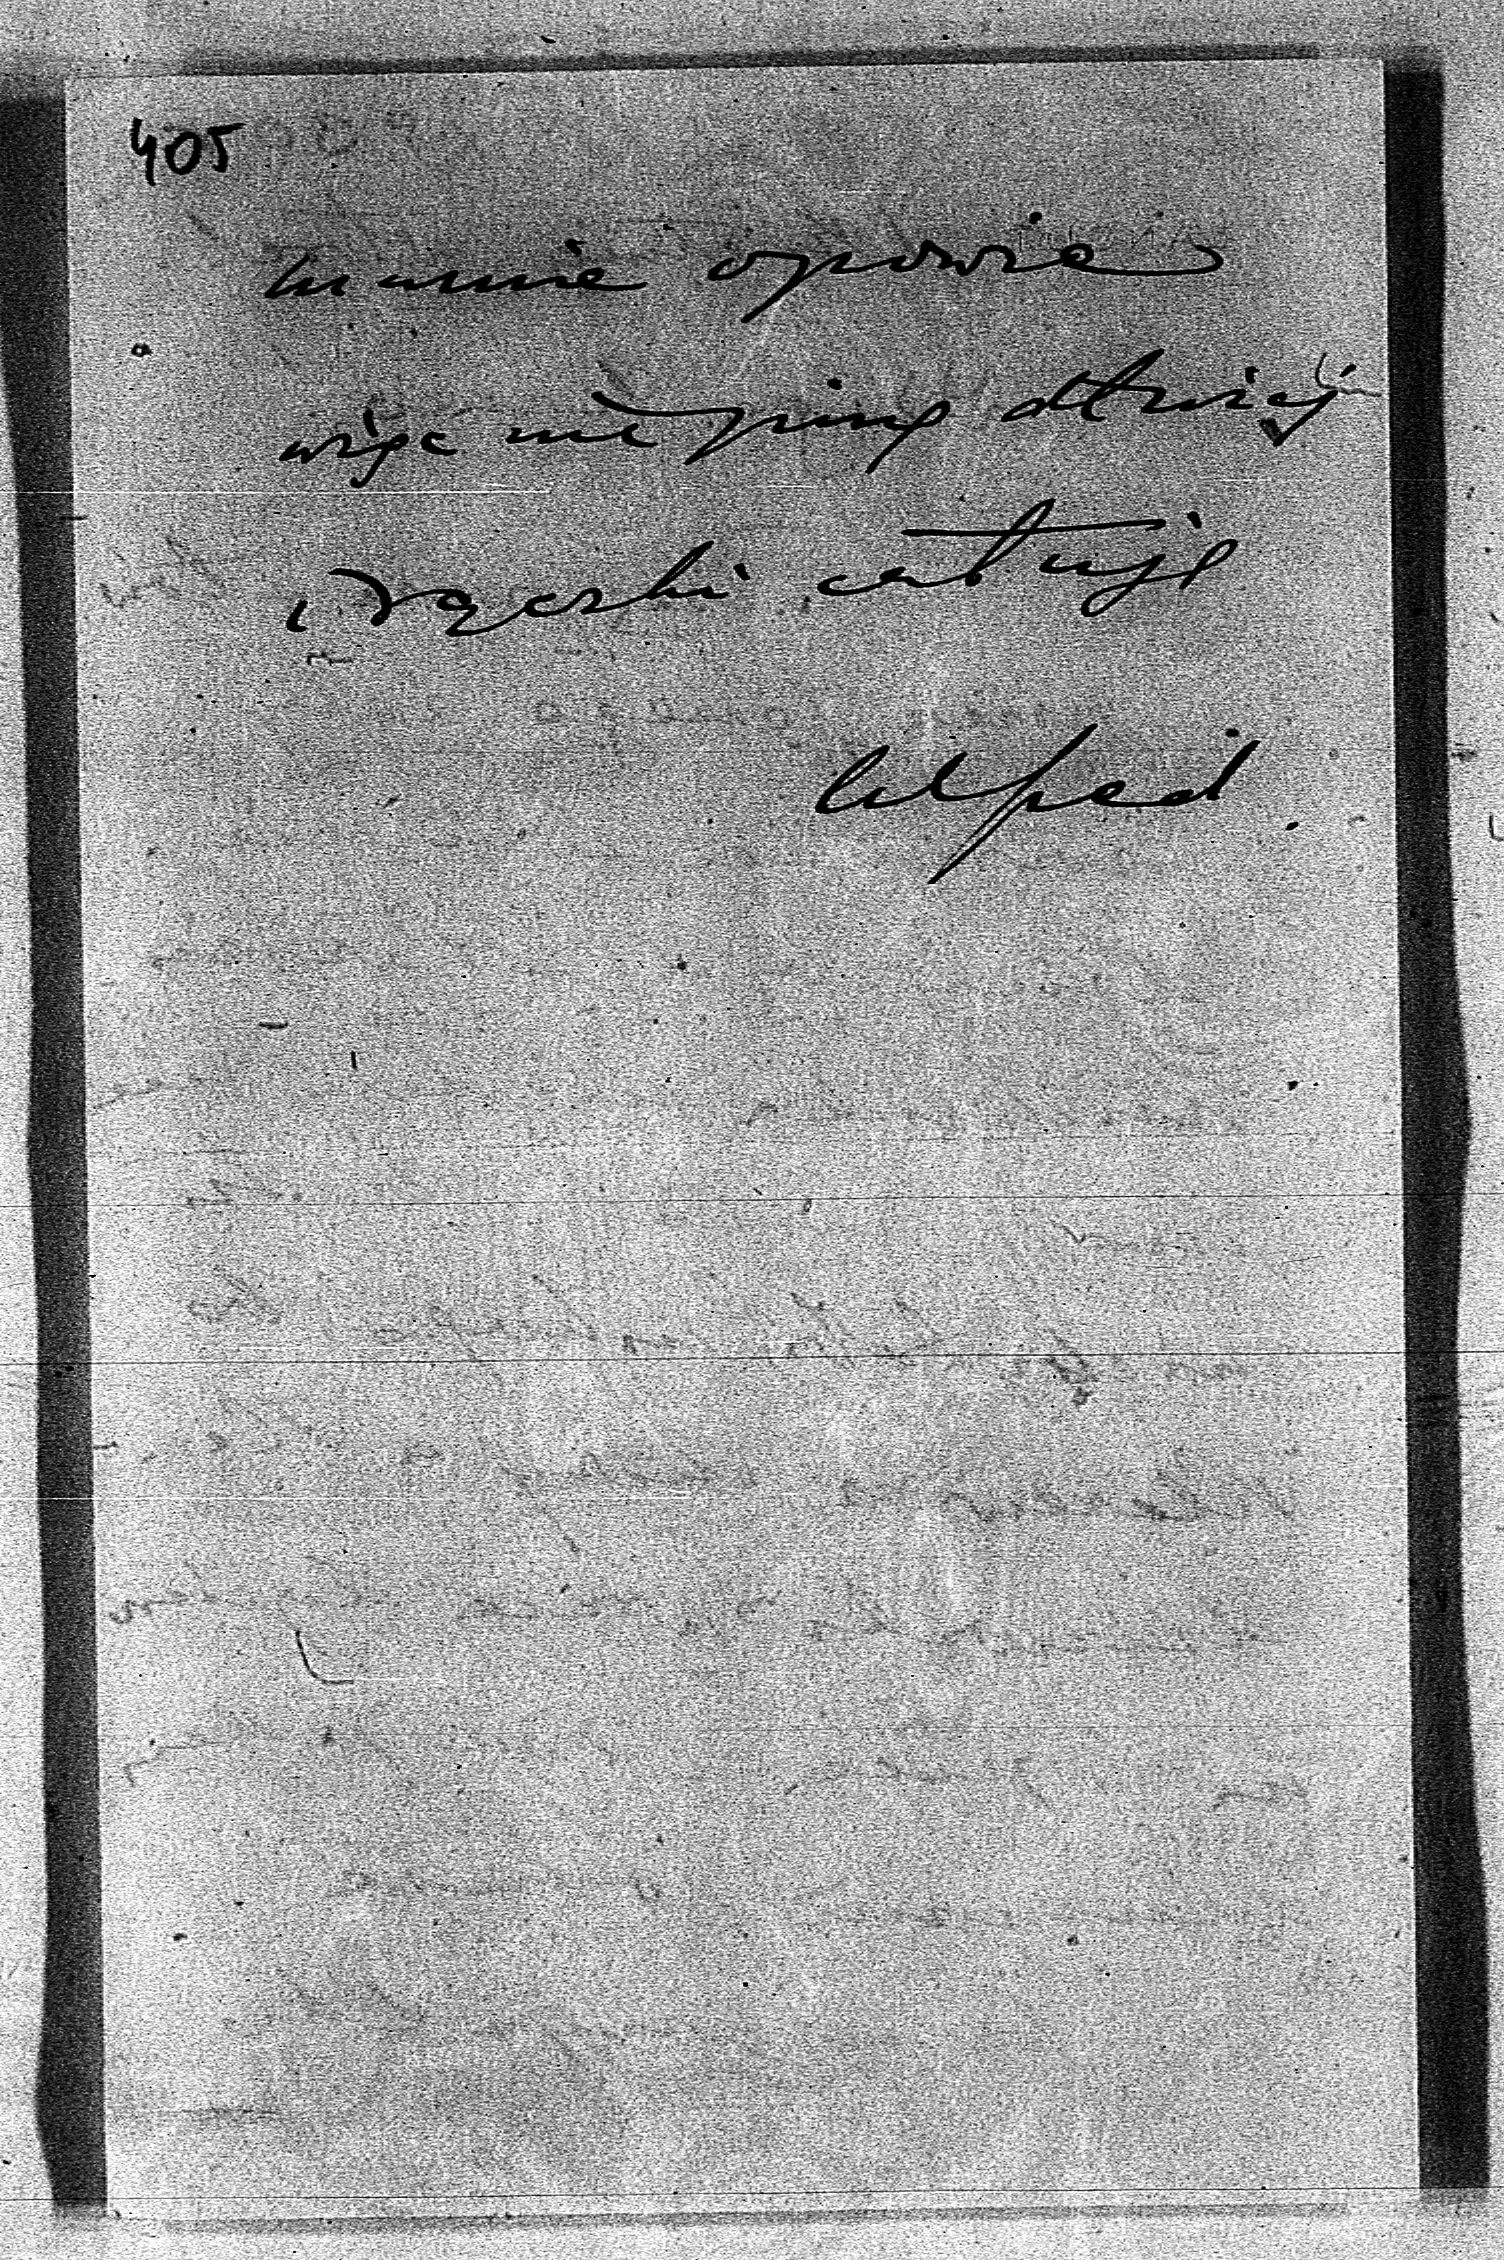 405
mamie opowie
więc nie piszę dłużej
i Rączki całuję
Alfred